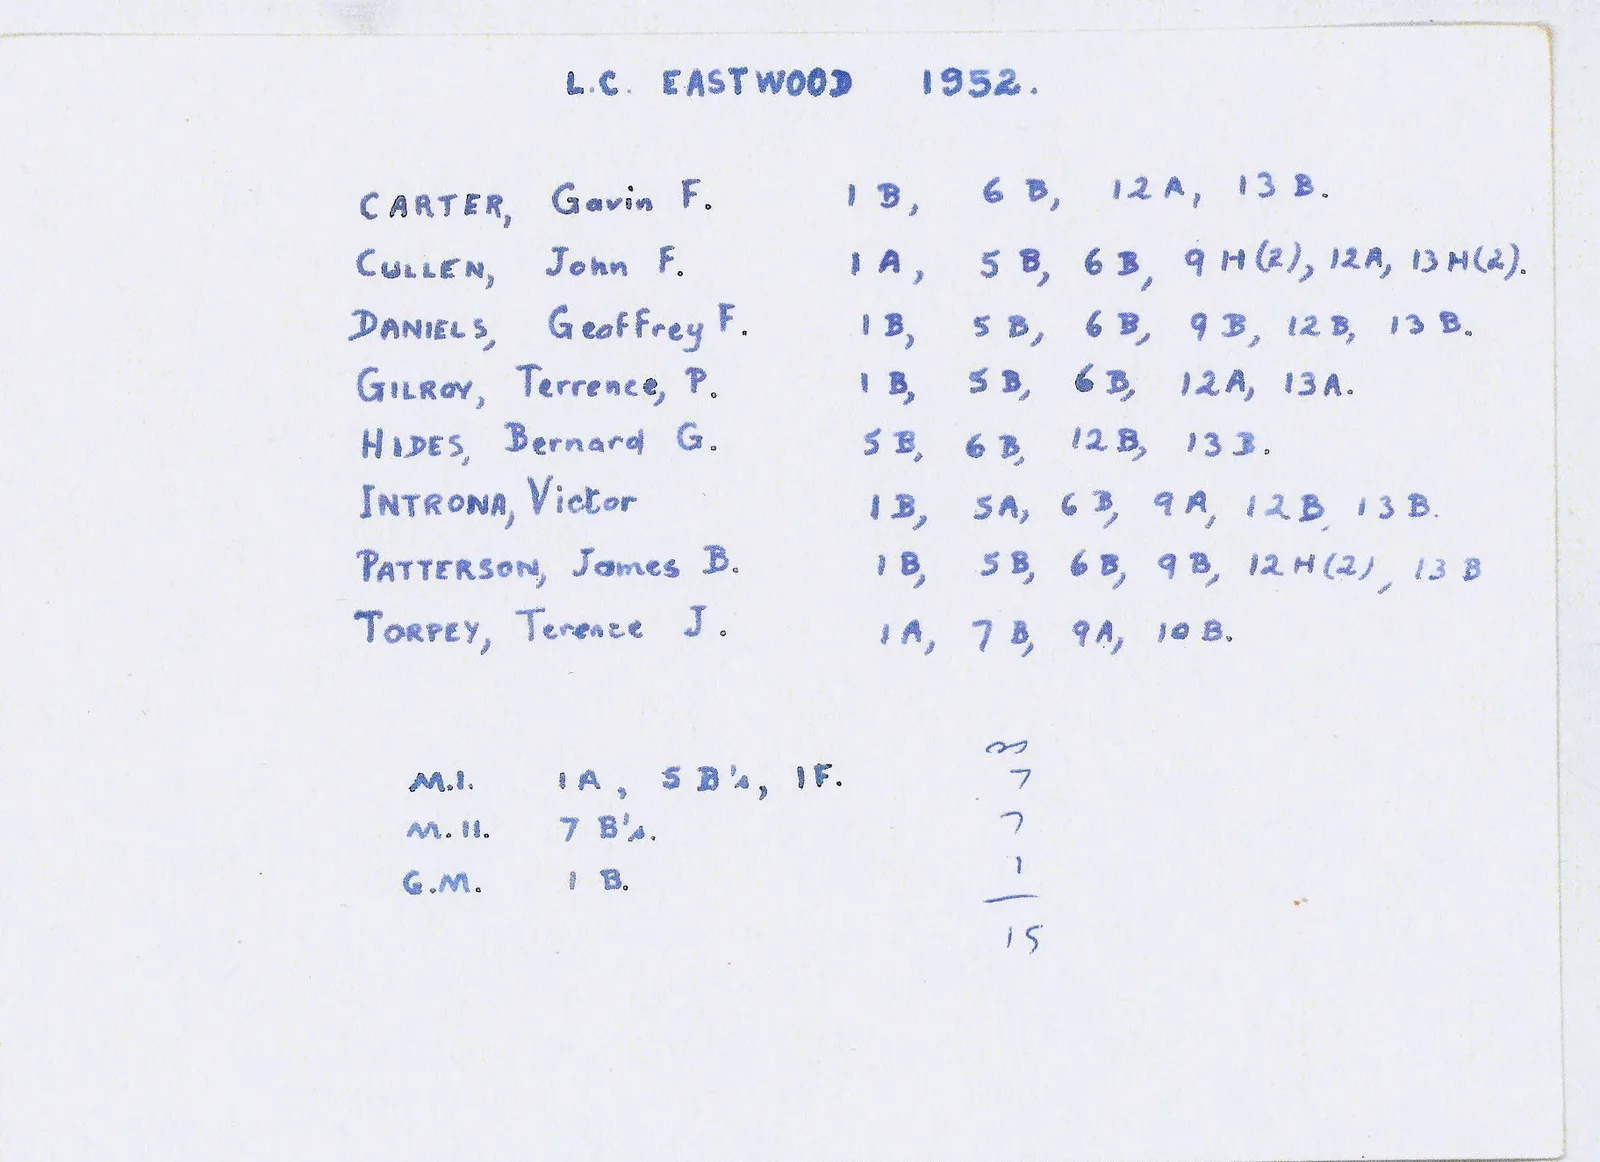 L.C. EASTWOOD 1952.
CARTER, Gavin F. 1 B, 6 B, 12 A, 13 B.
CULLEN, John F. 1 A, 5 B, 6 B, 9 H(2), 12A, 13 H(2).
DANIELS, Geoffrey F. 1 B, 5 B, 6 B, 9 B, 12 B, 13 B.
GILROY, Terrence, P. 1 B, 5 B, 6 B, 12A, 13A.
HIDES, Bernard G. 5 B, 6 B, 12 B, 13 B.
INTRONA, Victor 1 B, 5A, 6 B, 9 A, 12 B, 13 B.
PATTERSON, James B. 1 B, 5B, 6 B, 9 B, 12 H(2), 13 B
TORPEY, Terence J. 1 A, 7 B, 9A, 10 B.
M.I. 1 A, 5 B's, 1 F. 7
M.II. 7 B's. 7
G.M. 1 B. 1
15